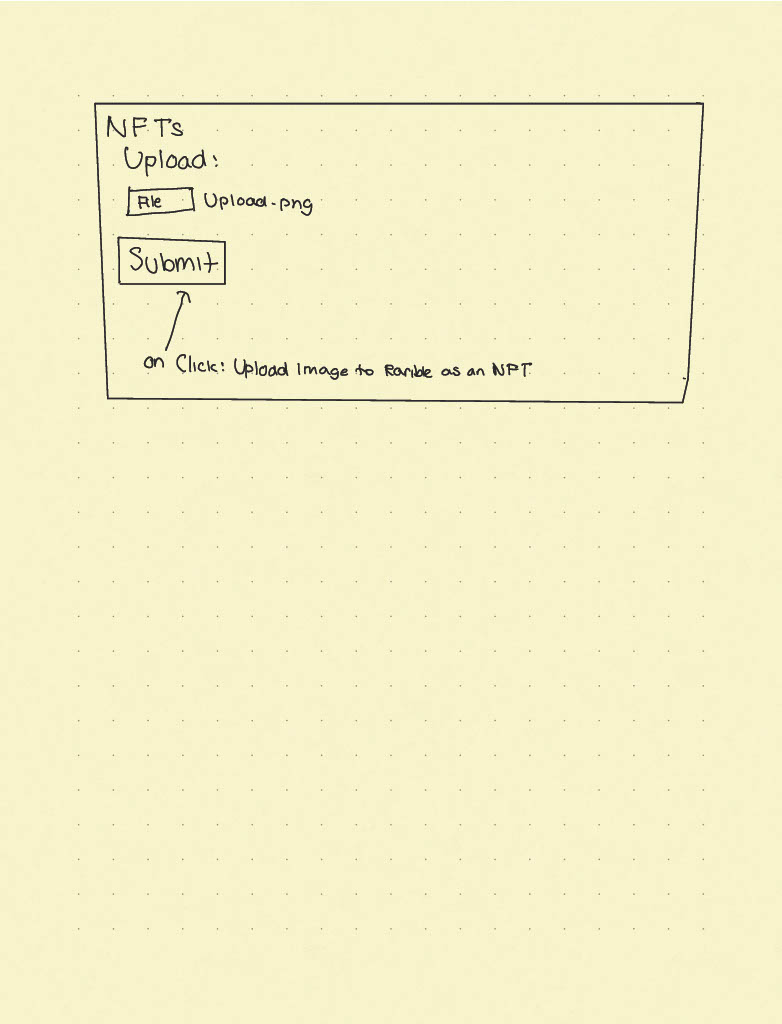 NFTs
Upload:
File Upload.png
Submit
on Click: Upload image to Rarible as an NFT